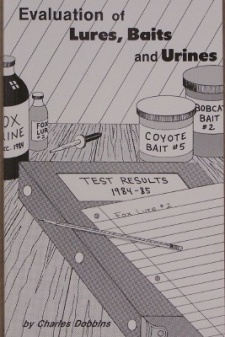 Evaluation of
Lures, Baits
and Urines
FOX
LURE
BOBCAT
BAIT
#2
COYOTE
BAIT #5
OX
INE
CC. 1984
TEST RESULTS
1984-85
FOX LURE #2
by Charles Dobbins